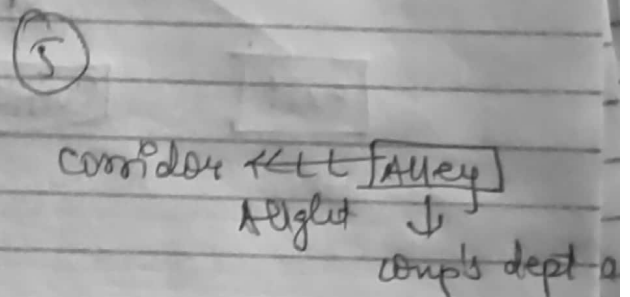 5
corridor <<< Alley
Alight ↓
comp's dept a